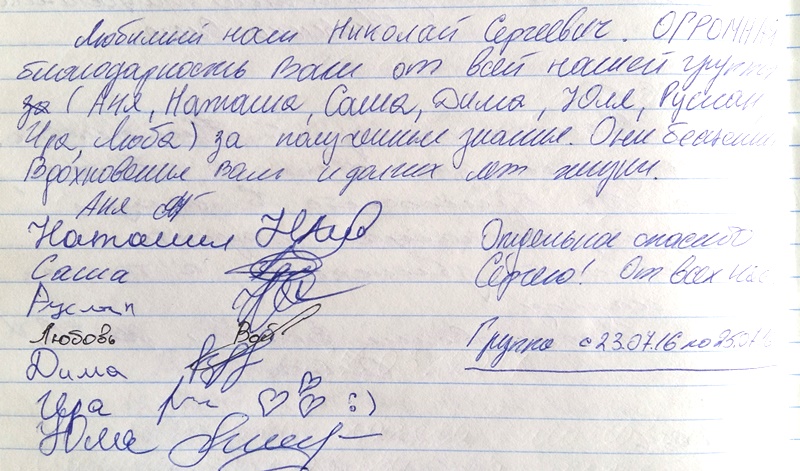 Любимый наш Николай Сергеевич. ОГРОМНАЯ
благодарность Вам от всей нашей группы
за (Аня, Наташа, Саша, Дима, Юля, Руслан
Ира, Люба) за полученные знания. Они бесценны
Вдохновения Вам и долгих лет жизни.
Аня
Наташа
Отдельное спасибо
Саша
Сергею! От всех нас
Руслан
Любовь
Группа с 23.07.16 по 25.07.16
Дима
Ира :)
Юля